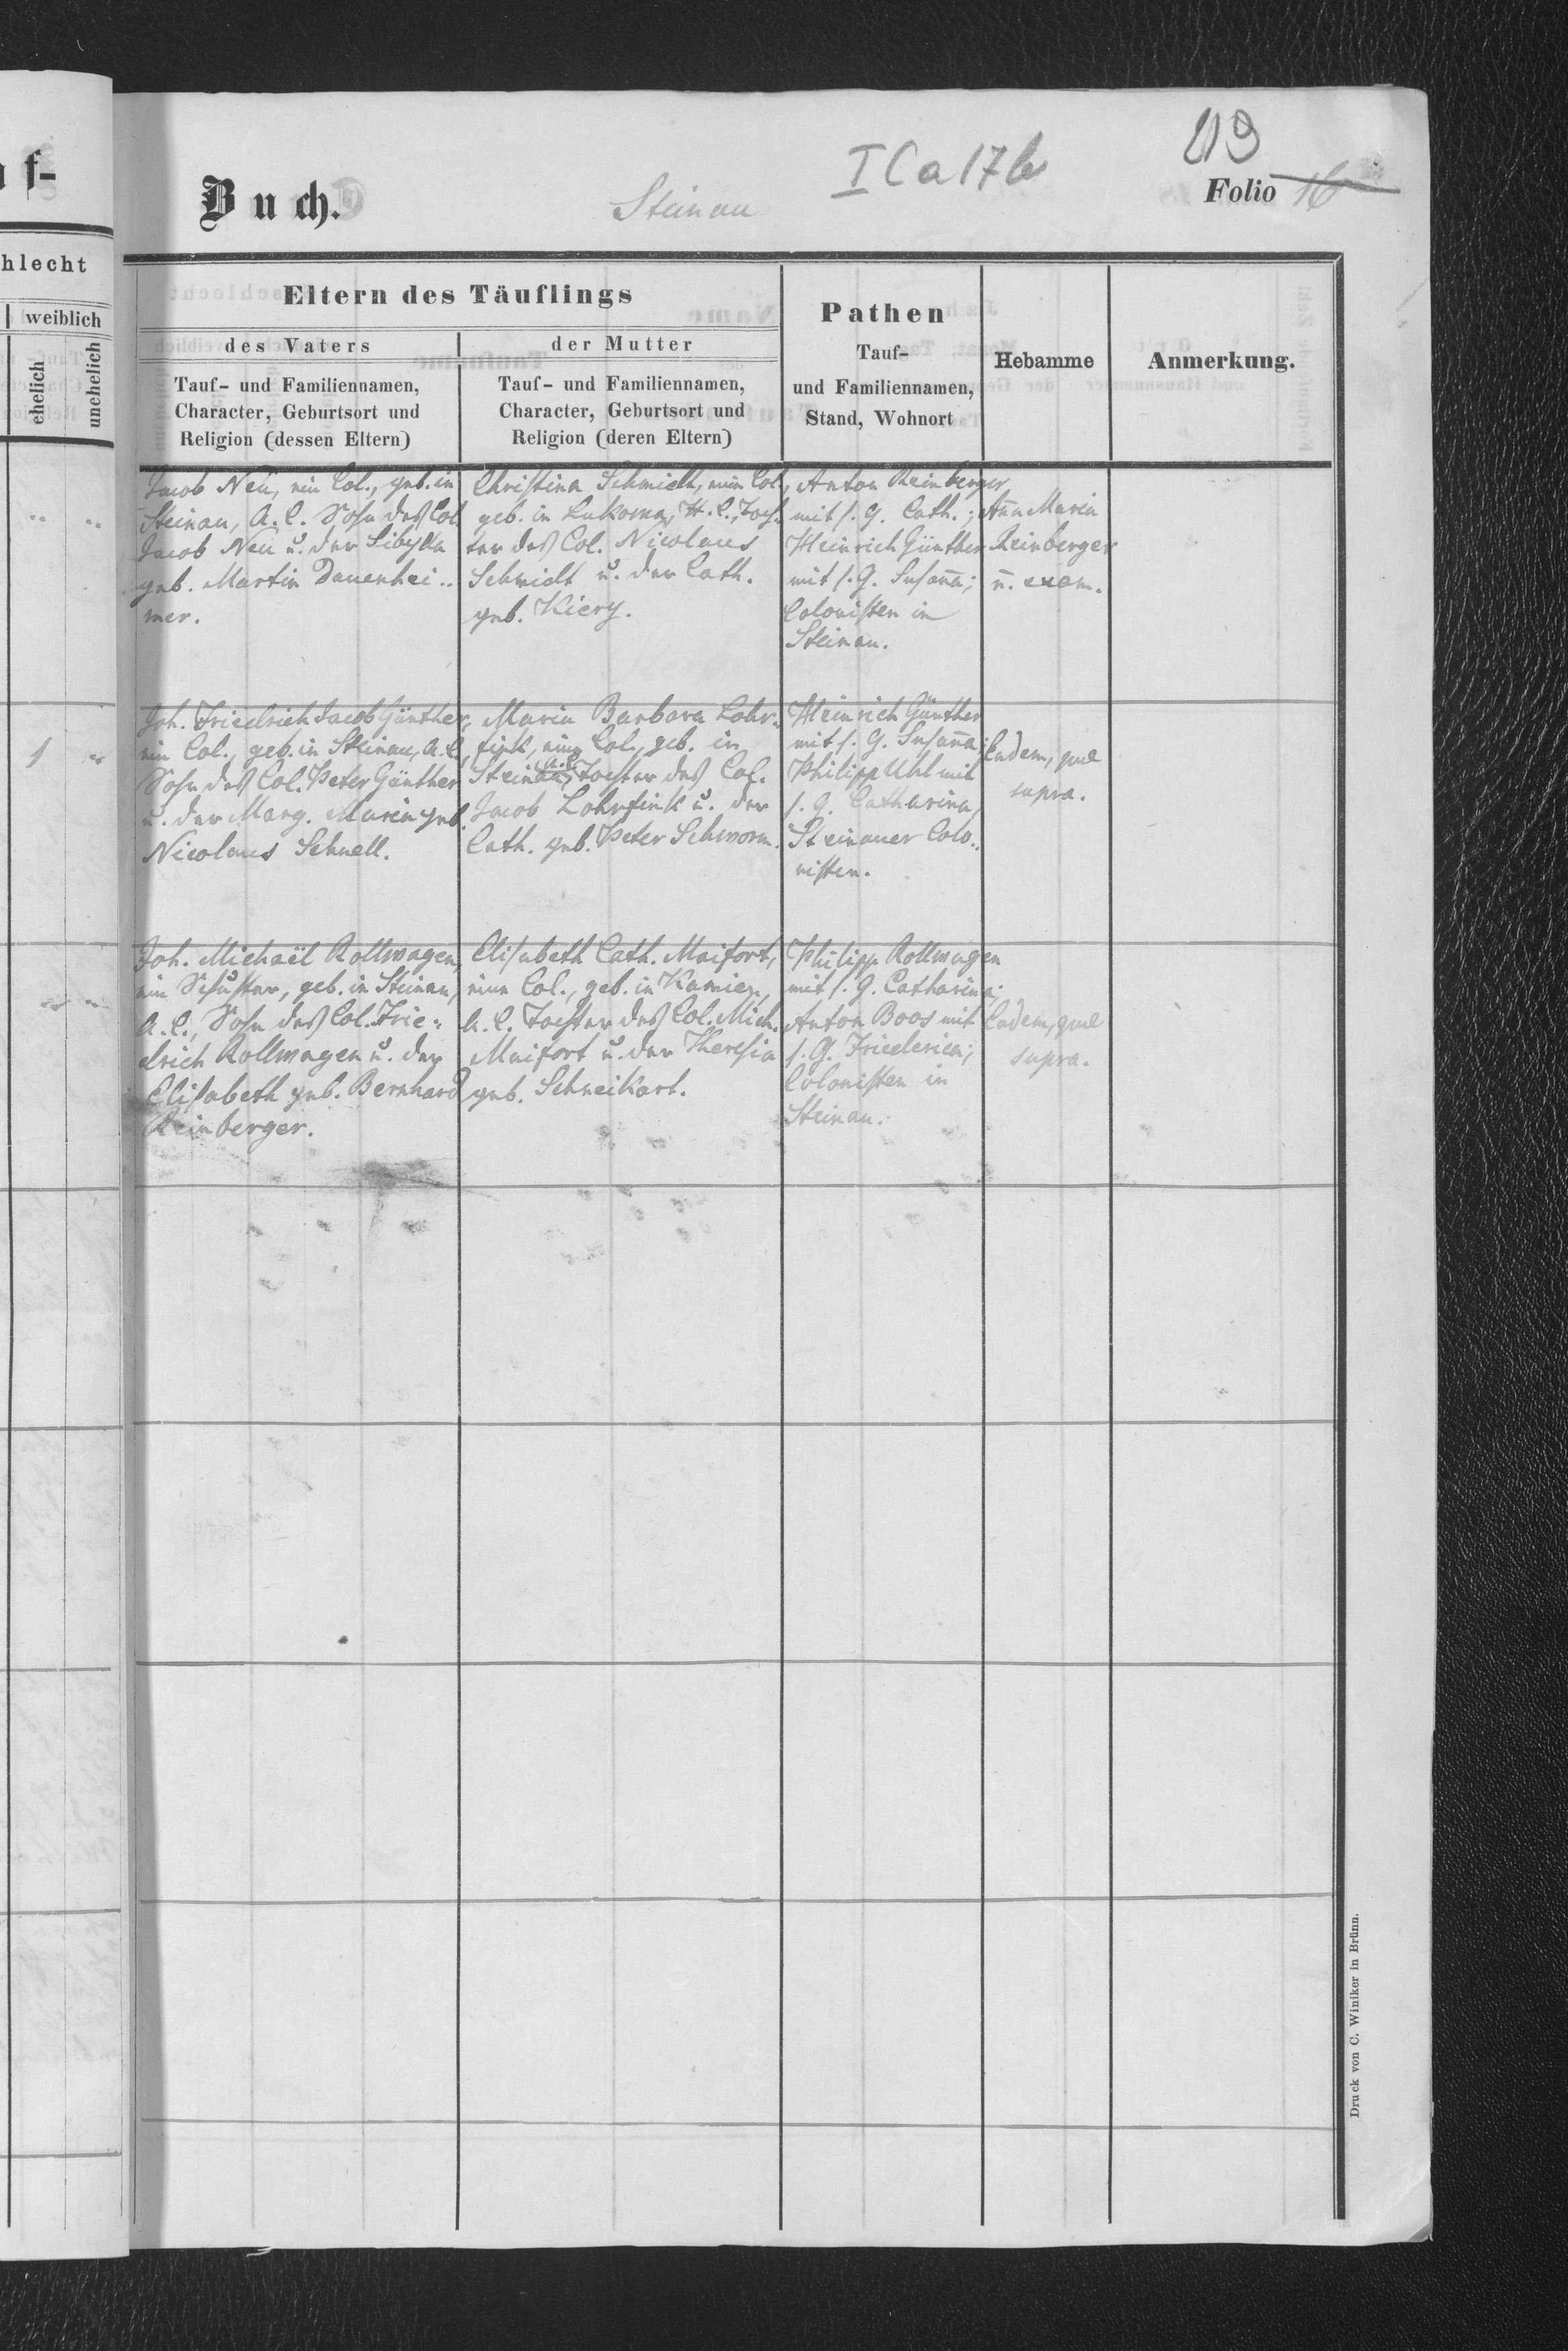 f-
hlecht
weiblich
ehelich
unehelich
1
Buch.
Steinau
I C a 17 b
Folio 16
Eltern des Täuflings
des Vaters
der Mutter
Tauf- und Familiennamen,
Character, Geburtsort und
Religion (dessen Eltern)
Tauf- und Familiennamen,
Character, Geburtsort und
Religion (deren Eltern)
Pathen
Tauf-
und Familiennamen,
Stand, Wohnort
Hebamme
Anmerkung.
Jacob Neu, ein Col., geb. in
Steinau, A. C. Sohn des Col.
Jacob Neu u. der Sibylla
geb. Martin Dauenhei..
mer.
Christina Schmidt, eine Col.,
geb. in Lukowa, H. C., Toch-
ter des Col. Nicolaus
Schmidt u. der Cath.
geb. Kiery.
Anton Reinberger
mit s. G. Cath.;
Heinrich Günther
mit s. G. Susana;
Colonisten in
Steinau.
Ana Maria
Reinberger
n. exam.
Joh. Friedrich Jacob Günther,
ein Col., geb. in Steinau, A. C.,
Sohn des Col. Peter Günther
u. der Marg. Maria geb.
Nicolaus Schnell.
Maria Barbara Lohr-
fink, eine Col., geb. in
Steinau, A. C. Tochter des Col.
Jacob Lohrfink u. der
Cath. geb. Peter Schworm.
Heinrich Günther
mit s. G. Susana;
Philipp Uhl mit
s. G. Catharina,
Steinauer Colo..
nisten.
Eadem, quae
supra.
Joh. Michaël Rollwagen,
ein Schuster, geb. in Steinau,
A. C., Sohn des Col. Frie-
drich Rollwagen u. der
Elisabeth geb. Bernhard
Reinberger.
Elisabeth Cath. Maifort,
eine Col., geb. in Kamien,
A. C. Tochter des Col. Mich.
Maifort u. der Theresia
geb. Schneikart.
Philipp Rollwagen
mit s. G. Catharina;
Anton Boos mit
s. G. Friederica;
Colonisten in
Steinau.
Eadem, quae
supra.
Druck von C. Winiker in Brünn.